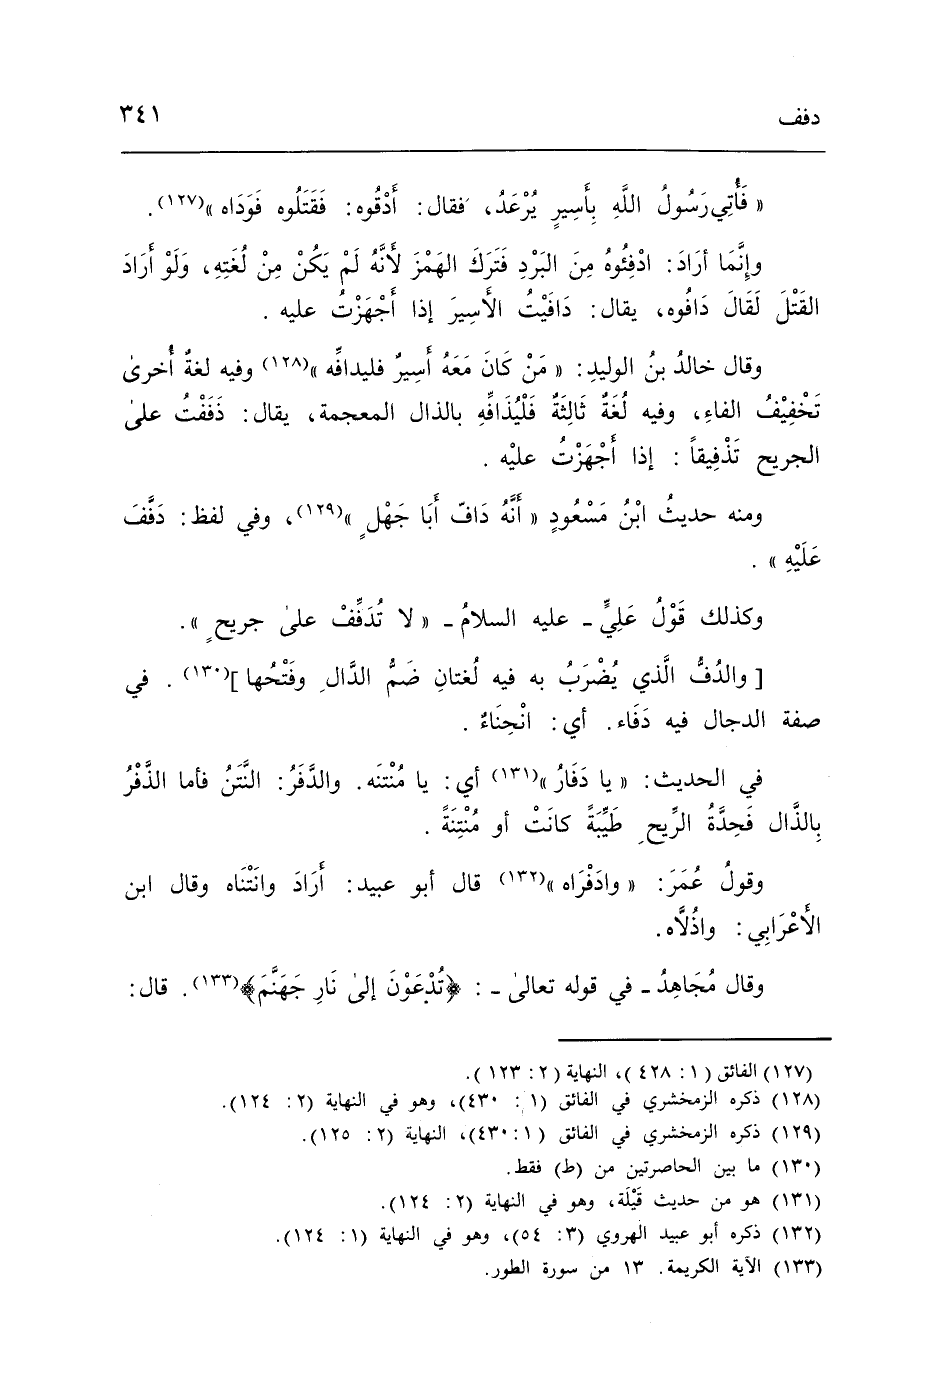 دفف ٣٤١
« فَأُتِي رَسُولُ اللَّهِ بِأَسِيرٍ يُرْعَدُ، فقال: أَدْفُوه: فَقَتَلُوه فَوَدَاه »(١٢٧).
وإنَّمَا أرَادَ: ادْفِئُوهُ مِنَ البَرْدِ فَتَرَكَ الهَمْزَ لأَنَّهُ لَمْ يَكُنْ مِنْ لُغَتِهِ، وَلَوْ أَرَادَ
القَتْلَ لَقَالَ دَافُوه، يقال: دَافَيْتُ الأَسِيرَ إذا أَجْهَزْتُ عليه .
وقال خالدُ بنُ الوليدِ: « مَنْ كَانَ مَعَهُ أَسِيرٌ فليدافِّه »(١٢٨) وفيه لغةٌ أُخرىٰ
تَخْفِيْفُ الفاءِ، وفيه لُغَةٌ ثَالِثَةٌ فَلْيُذَافِّهِ بالذال المعجمة، يقال: ذَفَفْتُ علىٰ
الجريح تَذْفِيفاً : إذا أَجْهَزْتُ عليْه .
ومنه حديثُ ابْنُ مَسْعُودٍ « أَنَّهُ دَافّ أَبَا جَهْلٍ »(١٢٩)، وفي لفظ: دَفَّفَ
عَلَيْهِ » .
وكذلك قَوْلُ عَلِيٍّ ـ عليه السلامُ ـ « لا تُدَفِّفْ علىٰ جريحٍ ».
[ والدُفُّ الَّذي يُضْرَبُ به فيه لُغتانِ ضَمُّ الدَّالِ وفَتْحُها ](١٣٠) . في
صفة الدجال فيه دَفَاء. أي: انْحِنَاءٌ .
في الحديث: « يا دَفَارُ »(١٣١) أي: يا مُنْتنَه. والدَّفَرُ: النَّتَنُ فأما الذَّفْرُ
بِالذَّال فَحِدَّةُ الرِّيحِ طَيِّبَةً كانَتْ أو مُنْتِنَةً .
وقولُ عُمَرَ: « وادَفْرَاه »(١٣٢) قال أبو عبيد: أَرَادَ وانَتْنَاه وقال ابن
الأَعْرَابِي: واذُلَّاه.
وقال مُجَاهِدُ ـ في قوله تعالىٰ ـ : ﴿تُدْعَوْنَ إلىٰ نَارِ جَهَنَّمَ﴾(١٣٣). قال:
(١٢٧) الفائق (١: ٤٢٨)، النهاية (٢: ١٢٣).
(١٢٨) ذكره الزمخشري في الفائق (١: ٤٣٠)، وهو في النهاية (٢: ١٢٤).
(١٢٩) ذكره الزمخشري في الفائق (١: ٤٣٠)، النهاية (٢: ١٢٥).
(١٣٠) ما بين الحاصرتين من (ط) فقط.
(١٣١) هو من حديث قَيْلَة، وهو في النهاية (٢: ١٢٤).
(١٣٢) ذكره أبو عبيد الهروي (٣: ٥٤)، وهو في النهاية (١: ١٢٤).
(١٣٣) الآية الكريمة. ١٣ من سورة الطور.